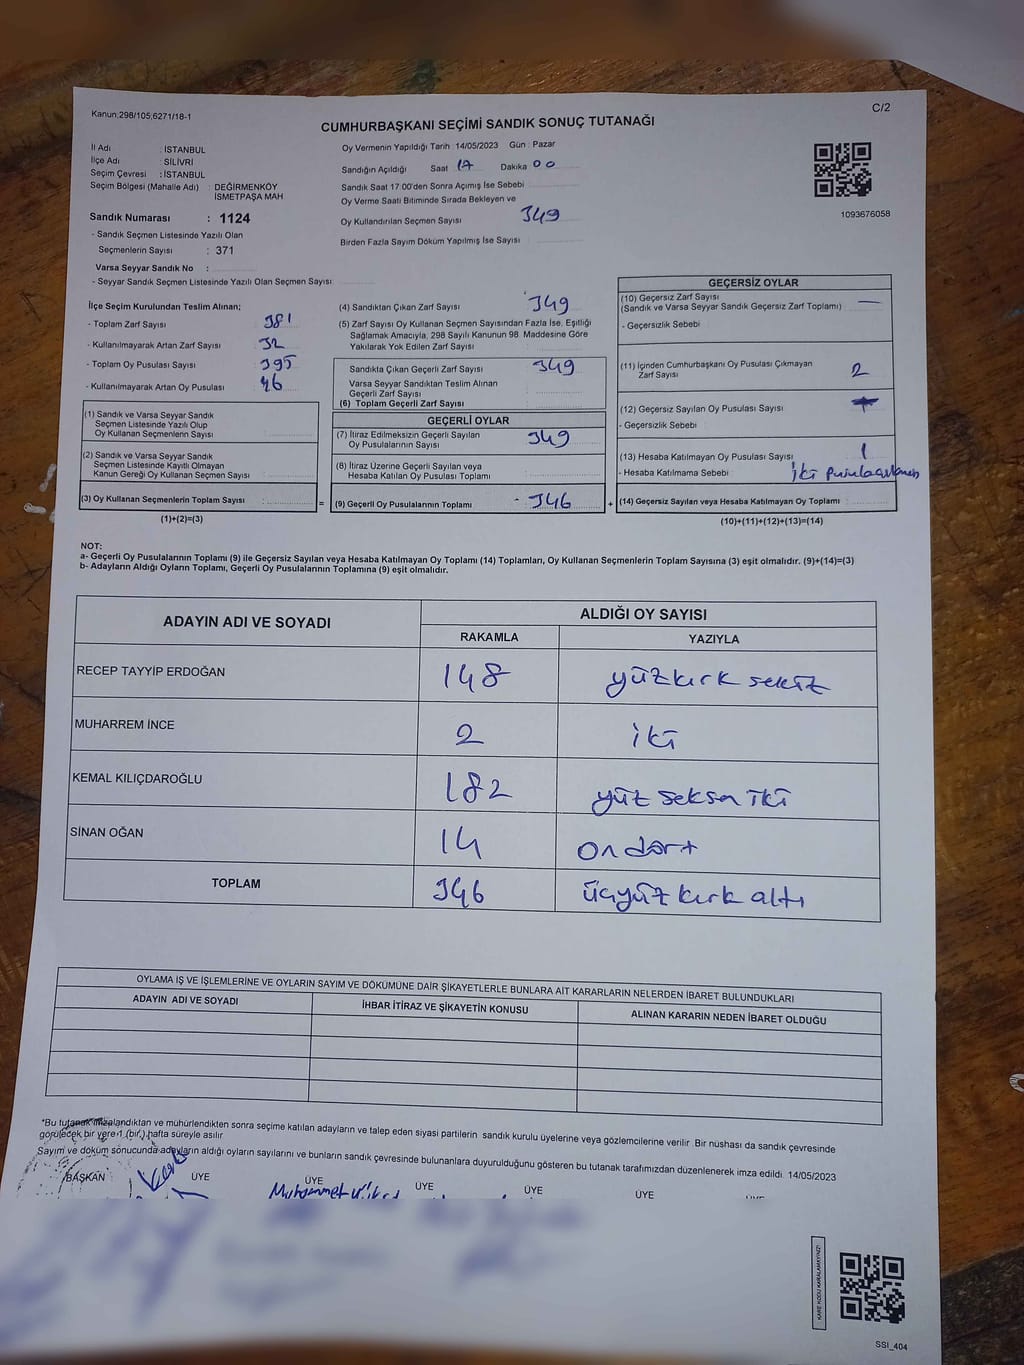 Kanun:298/105,6271/18-1
C/2
CUMHURBAŞKANI SEÇİMİ SANDIK SONUÇ TUTANAĞI
İl Adı : İSTANBUL
İlçe Adı : SİLİVRİ
Seçim Çevresi : İSTANBUL
Seçim Bölgesi (Mahalle Adı) : DEĞİRMENKÖY
İSMETPAŞA MAH
Sandık Numarası : 1124
- Sandık Seçmen Listesinde Yazılı Olan
Seçmenlerin Sayısı : 371
Varsa Seyyar Sandık No :
- Seyyar Sandık Seçmen Listesinde Yazılı Olan Seçmen Sayısı:
Oy Vermenin Yapıldığı Tarih : 14/05/2023 Gün : Pazar
Sandığın Açıldığı Saat 17 Dakika 00
Sandık Saat 17:00'den Sonra Açımış İse Sebebi
Oy Verme Saati Bitiminde Sırada Bekleyen ve
Oy Kullandırılan Seçmen Sayısı 349
Birden Fazla Sayım Döküm Yapılmış İse Sayısı
1093676058
İlçe Seçim Kurulundan Teslim Alınan;
- Toplam Zarf Sayısı 381
- Kullanılmayarak Artan Zarf Sayısı 32
- Toplam Oy Pusulası Sayısı 395
- Kullanılmayarak Artan Oy Pusulası 46
(1) Sandık ve Varsa Seyyar Sandık
Seçmen Listesinde Yazılı Olup
Oy Kullanan Seçmenlerin Sayısı
(2) Sandık ve Varsa Seyyar Sandık
Seçmen Listesinde Kayıtlı Olmayan
Kanun Gereği Oy Kullanan Seçmen Sayısı
(3) Oy Kullanan Seçmenlerin Toplam Sayısı :
(1)+(2)=(3)
=
(4) Sandıktan Çıkan Zarf Sayısı 349
(5) Zarf Sayısı Oy Kullanan Seçmen Sayısından Fazla İse, Eşitliği
Sağlamak Amacıyla, 298 Sayılı Kanunun 98. Maddesine Göre
Yakılarak Yok Edilen Zarf Sayısı :
Sandıkta Çıkan Geçerli Zarf Sayısı 349
Varsa Seyyar Sandıktan Teslim Alınan
Geçerli Zarf Sayısı
(6) Toplam Geçerli Zarf Sayısı
GEÇERLİ OYLAR
(7) İtiraz Edilmeksizin Geçerli Sayılan
Oy Pusulalarının Sayısı 349
(8) İtiraz Üzerine Geçerli Sayılan veya
Hesaba Katılan Oy Pusulası Toplamı
(9) Geçerli Oy Pusulalarının Toplamı 346
+
GEÇERSİZ OYLAR
(10) Geçersiz Zarf Sayısı
(Sandık ve Varsa Seyyar Sandık Geçersiz Zarf Toplamı) —
- Geçersizlik Sebebi
(11) İçinden Cumhurbaşkanı Oy Pusulası Çıkmayan
Zarf Sayısı 2
(12) Geçersiz Sayılan Oy Pusulası Sayısı
- Geçersizlik Sebebi
(13) Hesaba Katılmayan Oy Pusulası Sayısı 1
- Hesaba Katılmama Sebebi iki
(14) Geçersiz Sayılan veya Hesaba Katılmayan Oy Toplamı
(10)+(11)+(12)+(13)=(14)
NOT:
a- Geçerli Oy Pusulalarının Toplamı (9) ile Geçersiz Sayılan veya Hesaba Katılmayan Oy Toplamı (14) Toplamları, Oy Kullanan Seçmenlerin Toplam Sayısına (3) eşit olmalıdır. (9)+(14)=(3)
b- Adayların Aldığı Oyların Toplamı, Geçerli Oy Pusulalarının Toplamına (9) eşit olmalıdır.
ADAYIN ADI VE SOYADI
ALDIĞI OY SAYISI
RAKAMLA YAZIYLA
RECEP TAYYİP ERDOĞAN 148 yüzkırk sekiz
MUHARREM İNCE 2 iki
KEMAL KILIÇDAROĞLU 182 yüz seksen iki
SİNAN OĞAN 14 on dört
TOPLAM 346 üçyüz kırk altı
OYLAMA İŞ VE İŞLEMLERİNE VE OYLARIN SAYIM VE DÖKÜMÜNE DAİR ŞİKAYETLERLE BUNLARA AİT KARARLARIN NELERDEN İBARET BULUNDUKLARI
ADAYIN ADI VE SOYADI İHBAR İTİRAZ VE ŞİKAYETİN KONUSU ALINAN KARARIN NEDEN İBARET OLDUĞU
*Bu tutanak imzalandıktan ve mühürlendikten sonra seçime katılan adayların ve talep eden siyasi partilerin sandık kurulu üyelerine veya gözlemcilerine verilir. Bir nüshası da sandık çevresinde
görülecek bir yere 1 (bir) hafta süreyle asılır.
Sayım ve döküm sonucunda adayların aldığı oyların sayılarını ve bunların sandık çevresinde bulunanlara duyurulduğunu gösteren bu tutanak tarafımızdan düzenlenerek imza edildi. 14/05/2023
BAŞKAN ÜYE ÜYE ÜYE ÜYE ÜYE
KARE KODU KARALAMAYINIZ!
SSI_404